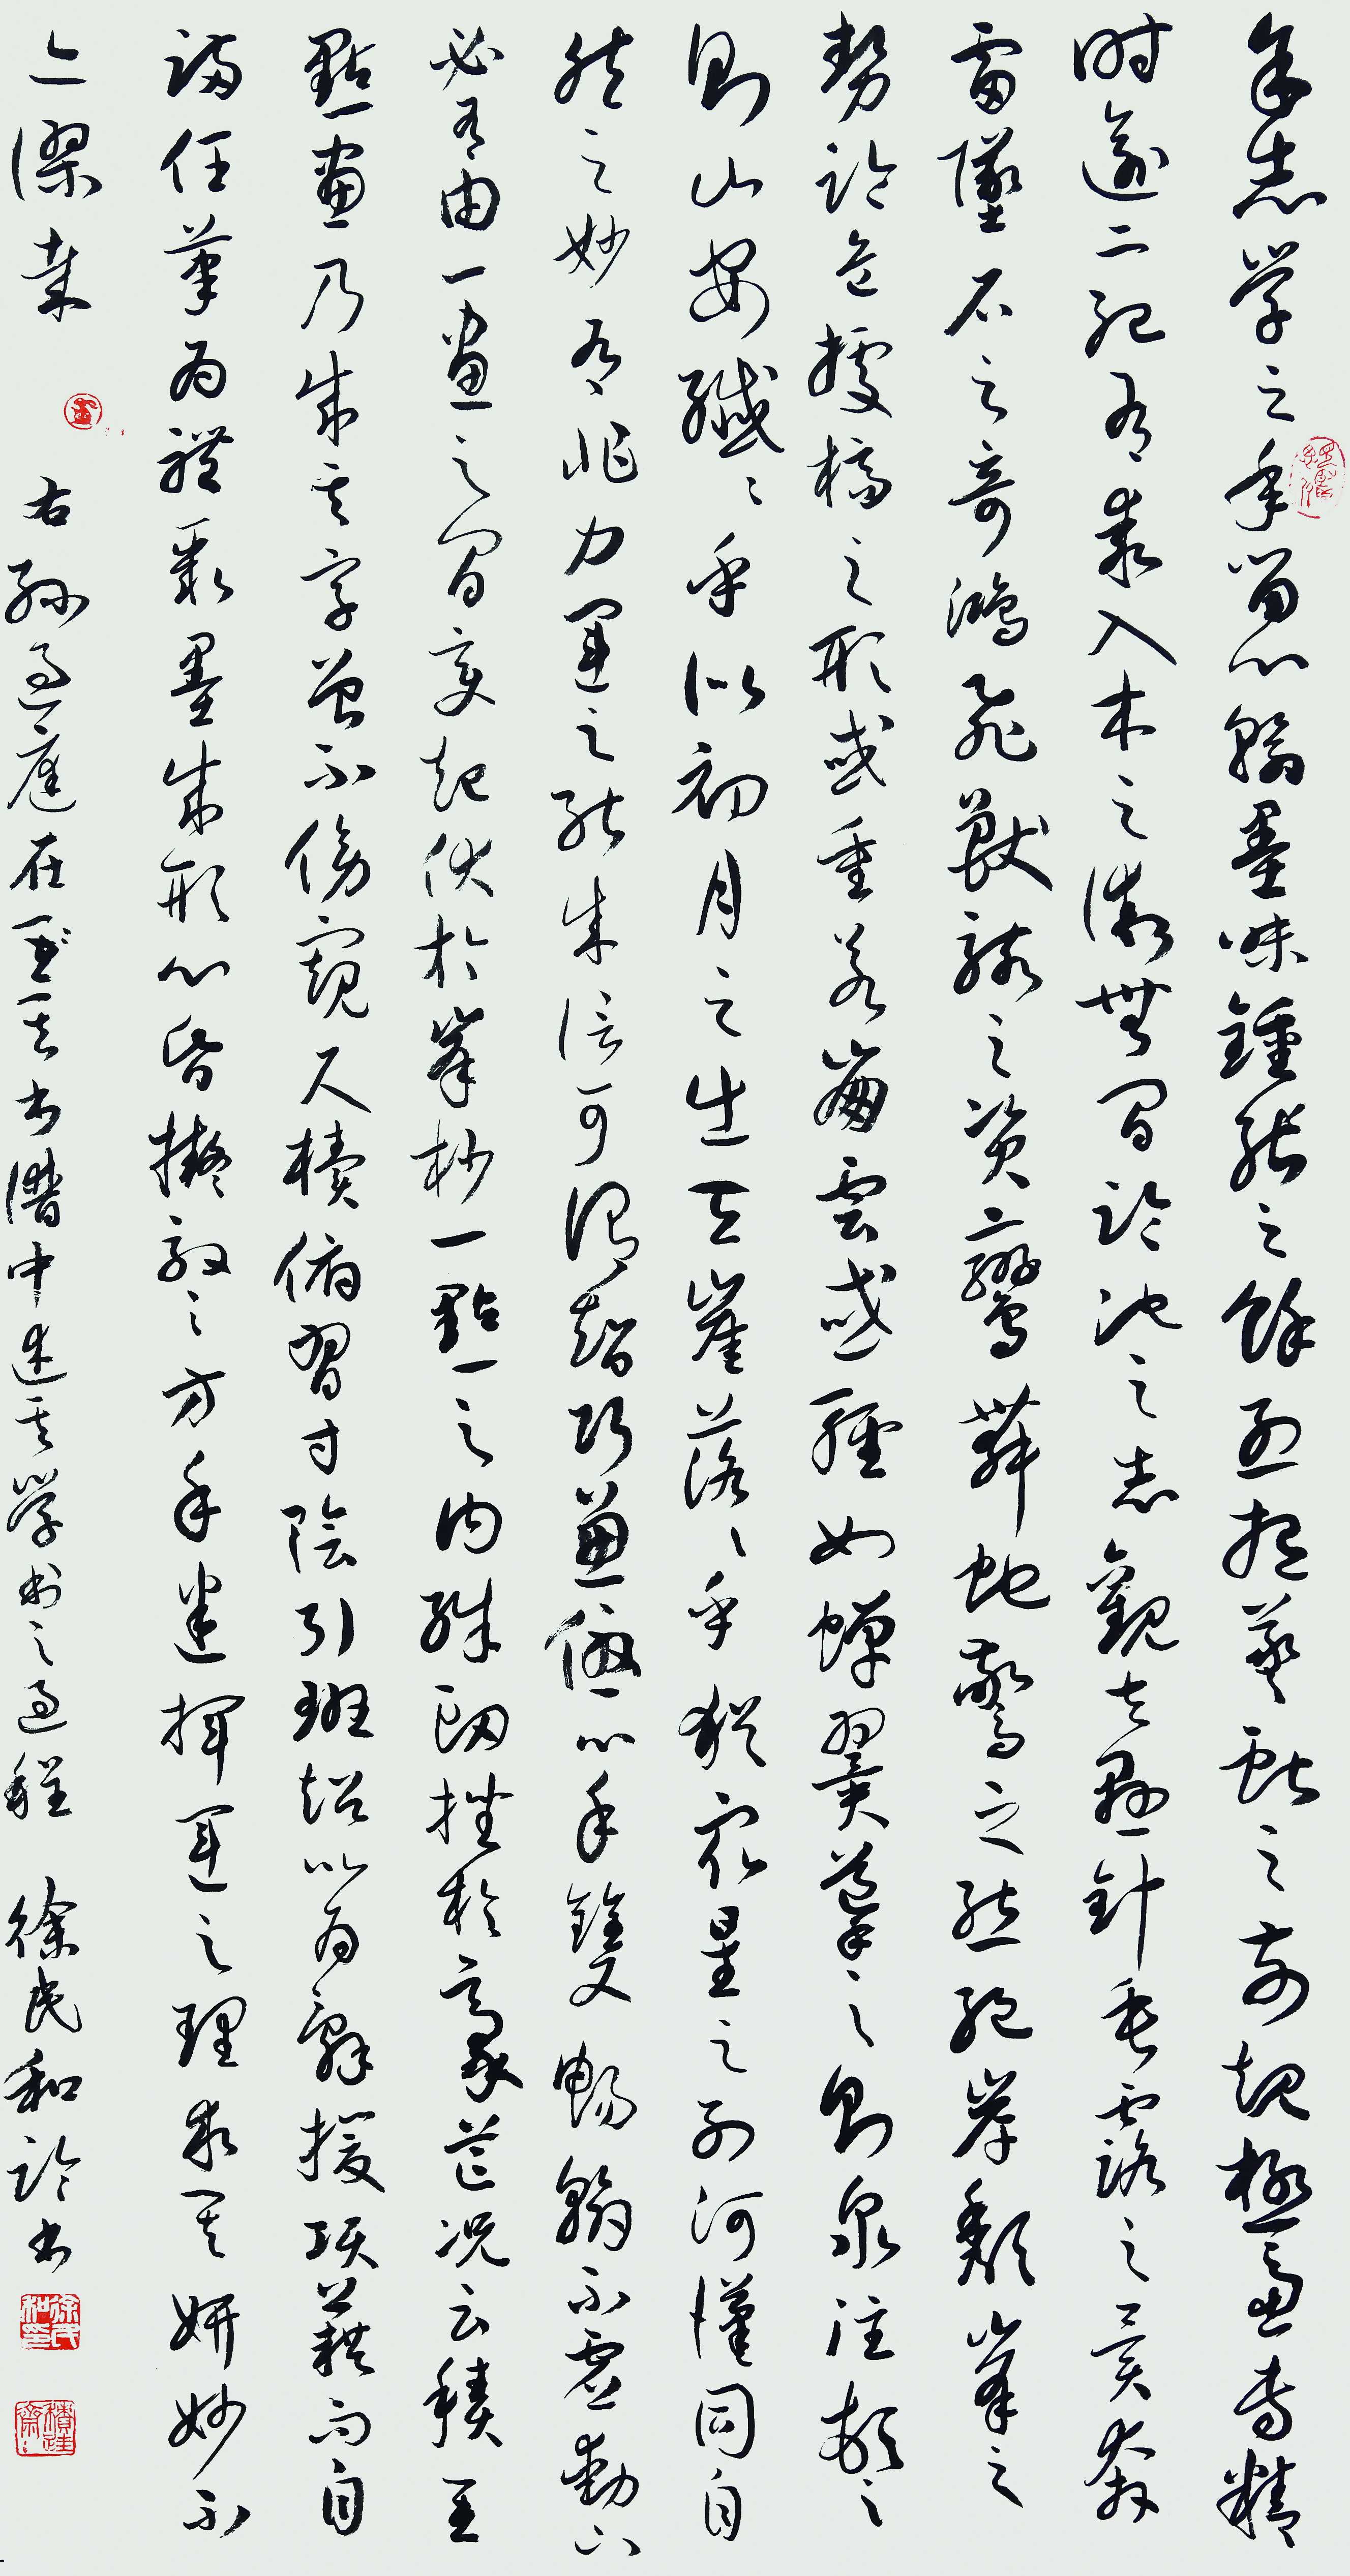 余志學之年留心翰墨味鍾張之餘烈挹羲獻之前規極慮專精
時逾二紀有乖入木之術無間臨池之志觀夫懸針垂露之異奔
雷墜石之奇鴻飛獸駭之資鸞舞蛇驚之態絕岸頹峯之
勢臨危據槁之形或重若崩雲或輕如蟬翼導之則泉注頓之
則山安纖纖乎似初月之出天崖落落乎猶衆星之列河漢同自
然之妙有非力運之能成信可謂智巧兼優心手雙暢翰不虛動下
必有由一畫之間變起伏於峯杪一點之內殊衂挫於豪芒況云積其
點畫乃成其字曾不傍窺尺牘俯習寸陰引班超以為辭援項籍而自
滿任筆為體聚墨成形心昏擬效之方手迷揮運之理求其妍妙不
亦謬哉
右孫過庭在其書譜中述其學書之過程 徐民和臨書